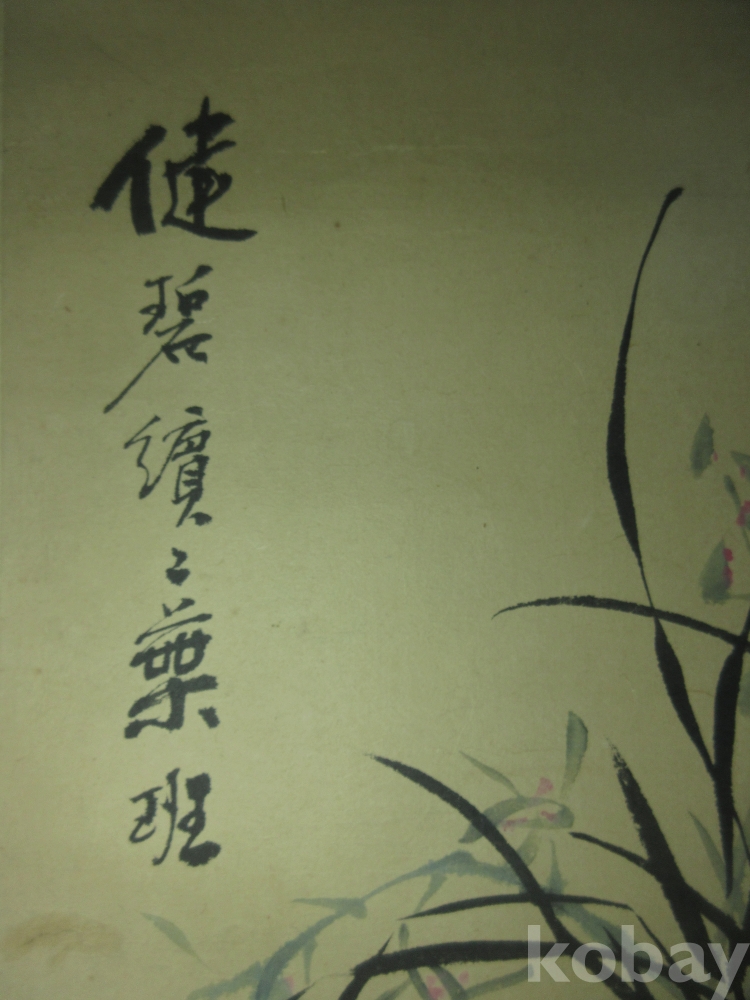 健碧繽〻葉班
kobay